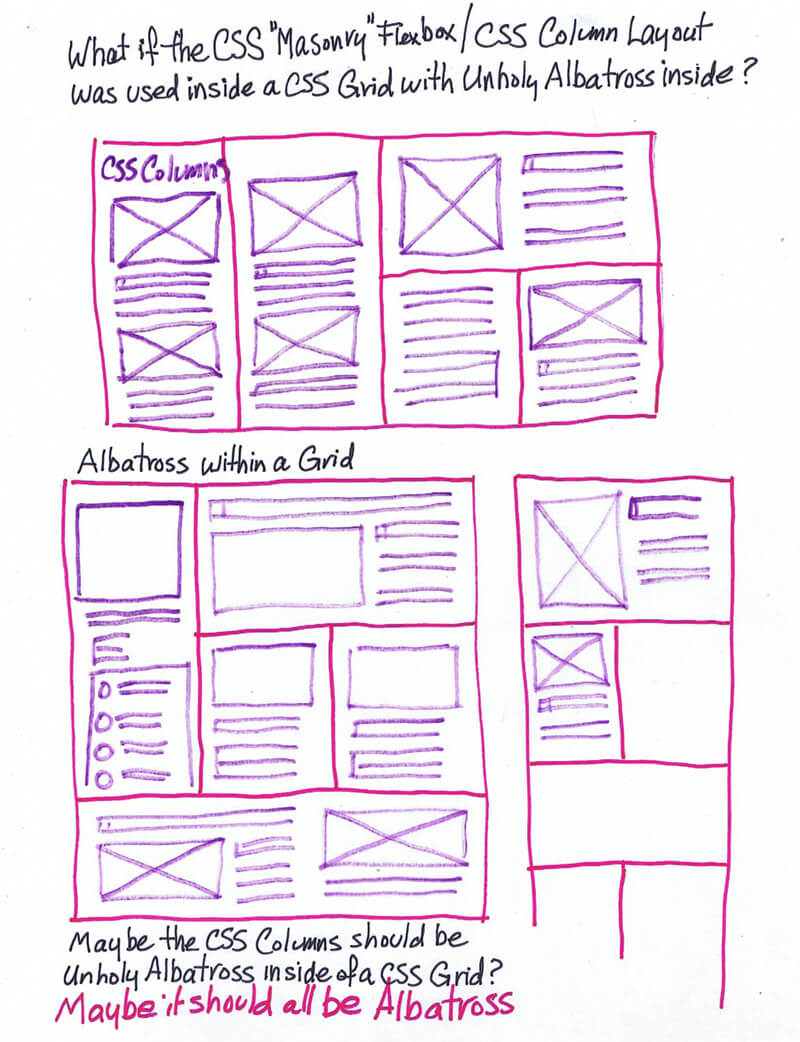 What if the CSS "Masonry" Flexbox/CSS Column Layout
was used inside a CSS Grid with Unholy Albatross inside?
CSS Columns
Albatross within a Grid
Maybe the CSS Columns should be
Unholy Albatross inside of a CSS Grid?
Maybe it should all be Albatross